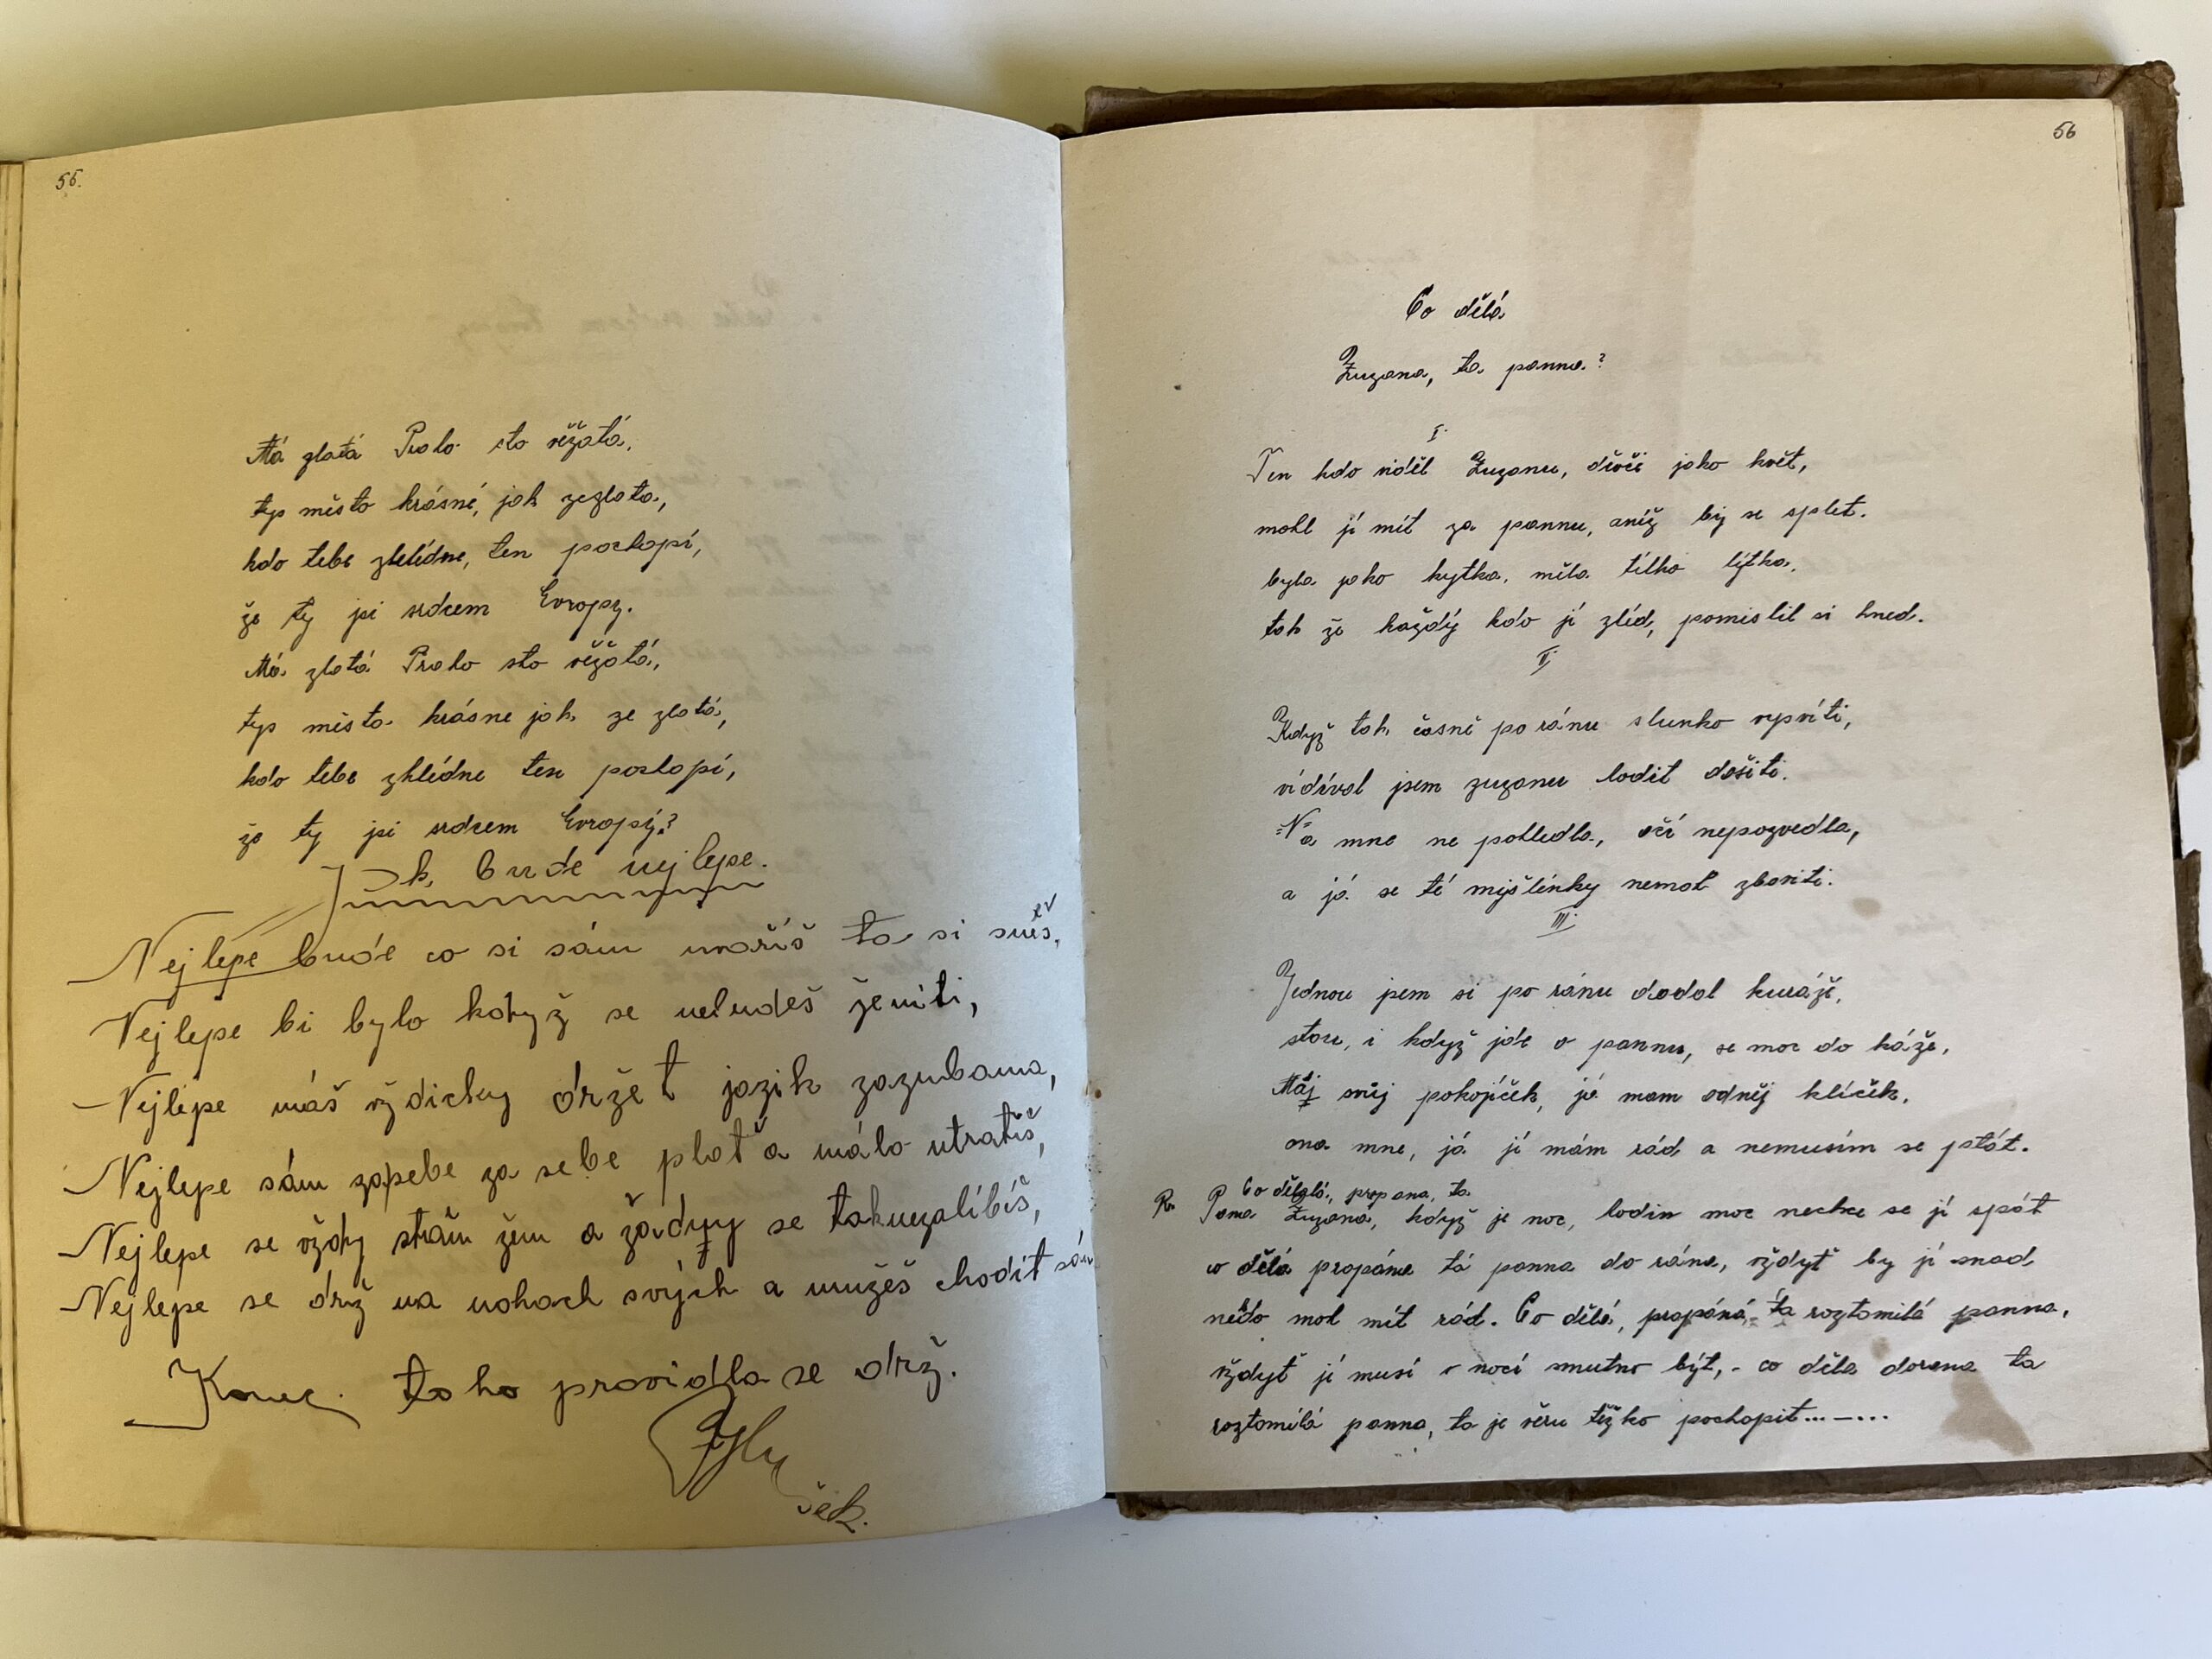 55.
Má zlatá Praho sto věžatá,
tys město krásné, jak zezlata,
kdo tebe zhlédne, ten pochopí,
že ty jsi srdcem Evropy.
Má zlatá Praho sto věžatá,
tys město krásne jak ze zlatá,
kdo tebe zhlédne ten pochopí,
že ty jsi srdcem Evropy?
Jak bude nejlepe.
Nejlepe bude co si sám uvaříš to si sněs,
Nejlepe bi bylo když se nebudeš ženiti,
Nejlépe máš vždicky držet jazik zazubama,
Nejlepe sám za sebe plať a málo utratíš,
Nejlepe se vždy stráň žen a žádný se taknezalíbíš,
Nejlépe se drž na nohach svých a mužeš chodit sám
Konec. toho pravidla se drž.
56
Co dělá
Zuzana, ta panna?
I.
Ten kdo viděl Zuzanu, děvče jako květ,
mohl jí mít za pannu, aníž by se splet.
byla jako kytka, měla tílko lýtka,
tak že každý kdo jí zléd, pomislil si hned.
II.
Když tak časně po ránu slunko vysvíti,
vídíval jsem zuzanu lodit došiti.
Na mne ne pohledla, očí nepozvedla,
a já se té myšlénky nemoh zbaviti.
III.
Jednou jsem si po ránu dodal kuráže,
stou, i když jde o pannu, se moc do káže,
Máj svůj pokojíček, já mam odněj klíček,
ona mne, já jí mám rád a nemusím se ptát.
Co dělalá, propana, ta
R. Pana Zuzana, když je noc, lodin moc nechce se jí spát
co dělá propána tá panna do rána, vždyť by jí snad
někdo moh mít rád. Co dělá, propáná, ta roztomilá panna,
vždyť jí musí v nocí smutno být, - co děla dorana ta
roztomilá panna, to je věru těžko pochopit...—...